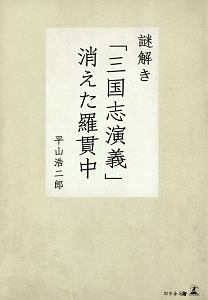 謎解き
「三国志演義」
消えた羅貫中
平山浩二郎
幻冬舎